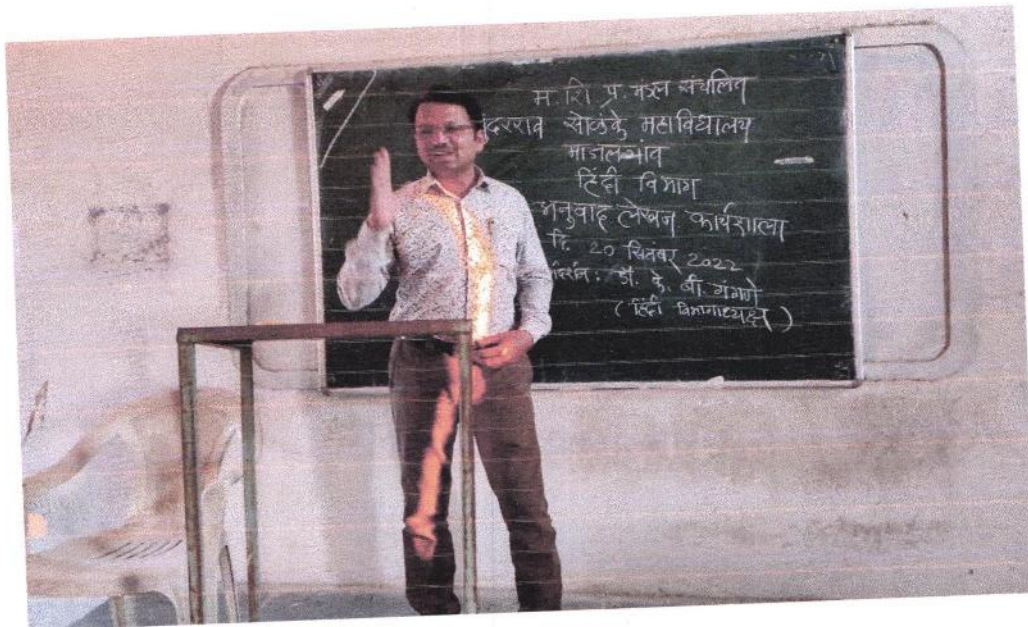 म. शि. प्र. मंडल संचलित
दरराव सोळंके महाविद्यालय
माजलगांव
हिंदी विभाग
अनुवाद लेखन कार्यशाला
दि. 20 सितंबर 2022
र्गदर्शन : डॉ. के. बी. गंगणे
( हिंदी विभागाध्यक्ष )